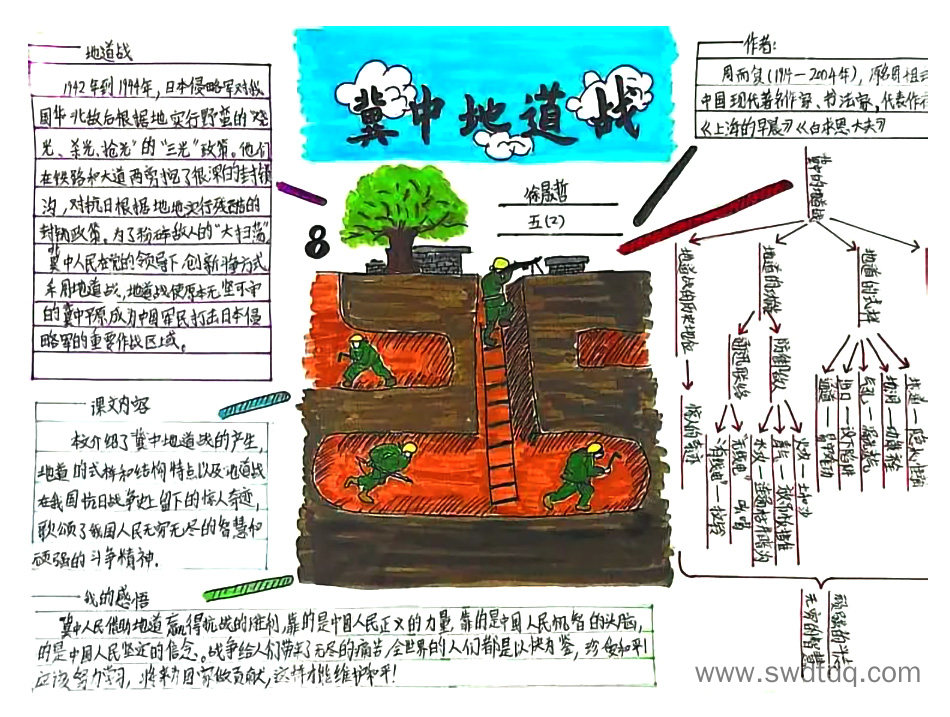 地道战
1942年到1944年，日本侵略军对我
国华北敌后根据地实行野蛮的"烧
光、杀光、抢光"的"三光"政策。他们
在铁路和大道两旁挖了很深的封锁
沟，对抗日根据地实行残酷的
封锁政策。为了粉碎敌人的"大扫荡"，
冀中人民在党的领导下，创新斗争方式
采用地道战，地道战使原本无坚可守
的冀中平原，成为中国军民打击日本侵
略军的重要作战区域。
课文内容
介绍了冀中地道战的产生，
地道的式样和结构特点以及地道战
在我国抗日战争史上留下的惊人奇迹，
歌颂了我国人民无穷无尽的智慧和
顽强的斗争精神.
我的感悟
冀中人民借助地道赢得抗战的胜利，靠的是中国人民正义的力量，靠的是中国人民机智的头脑，
的是中国人民坚定的信念。战争给人们带来了无尽的痛苦，全世界的人们都是以快为鉴，珍爱和平！
应该努力学习，将来为国家做贡献，这样才能维护和平！
冀中地道战
徐晟哲
五(2)
8
作者：
周而复(1914－2004年)，原名周祖
中国现代著名作家、书法家，代表作
《上海的早晨》《白求恩大夫》
冀中的地道战
地道的式样
出口－设下陷阱
气孔
防御
无线电
有线电
惊人的奇迹
顽强的斗志
无穷的智慧
www.swdtdq.com